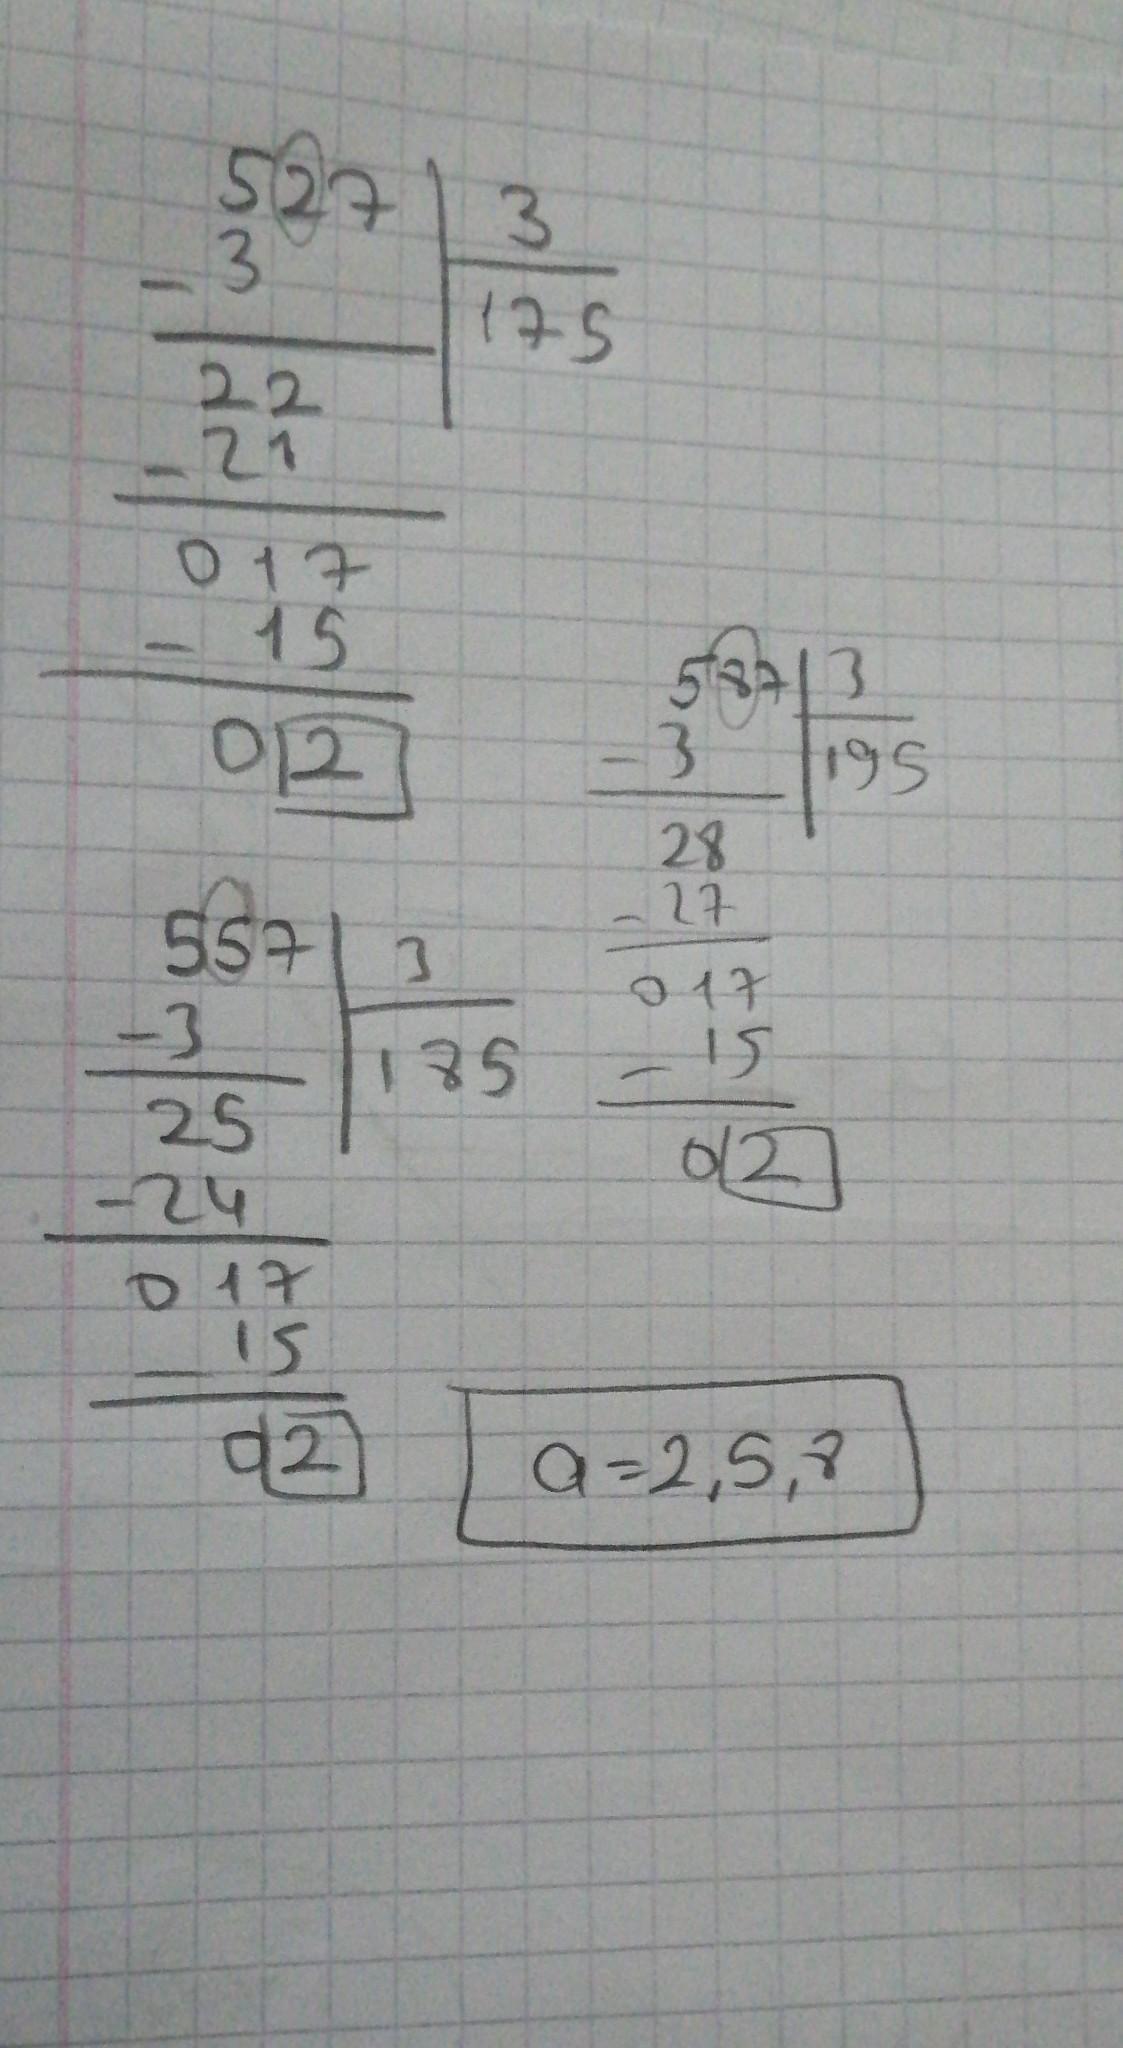 527 3
- 3 175
22
- 21
017
- 15
02
587 3
- 3 195
28
- 27
017
- 15
02
557 3
- 3 185
25
- 24
017
- 15
02
a=2,5,8